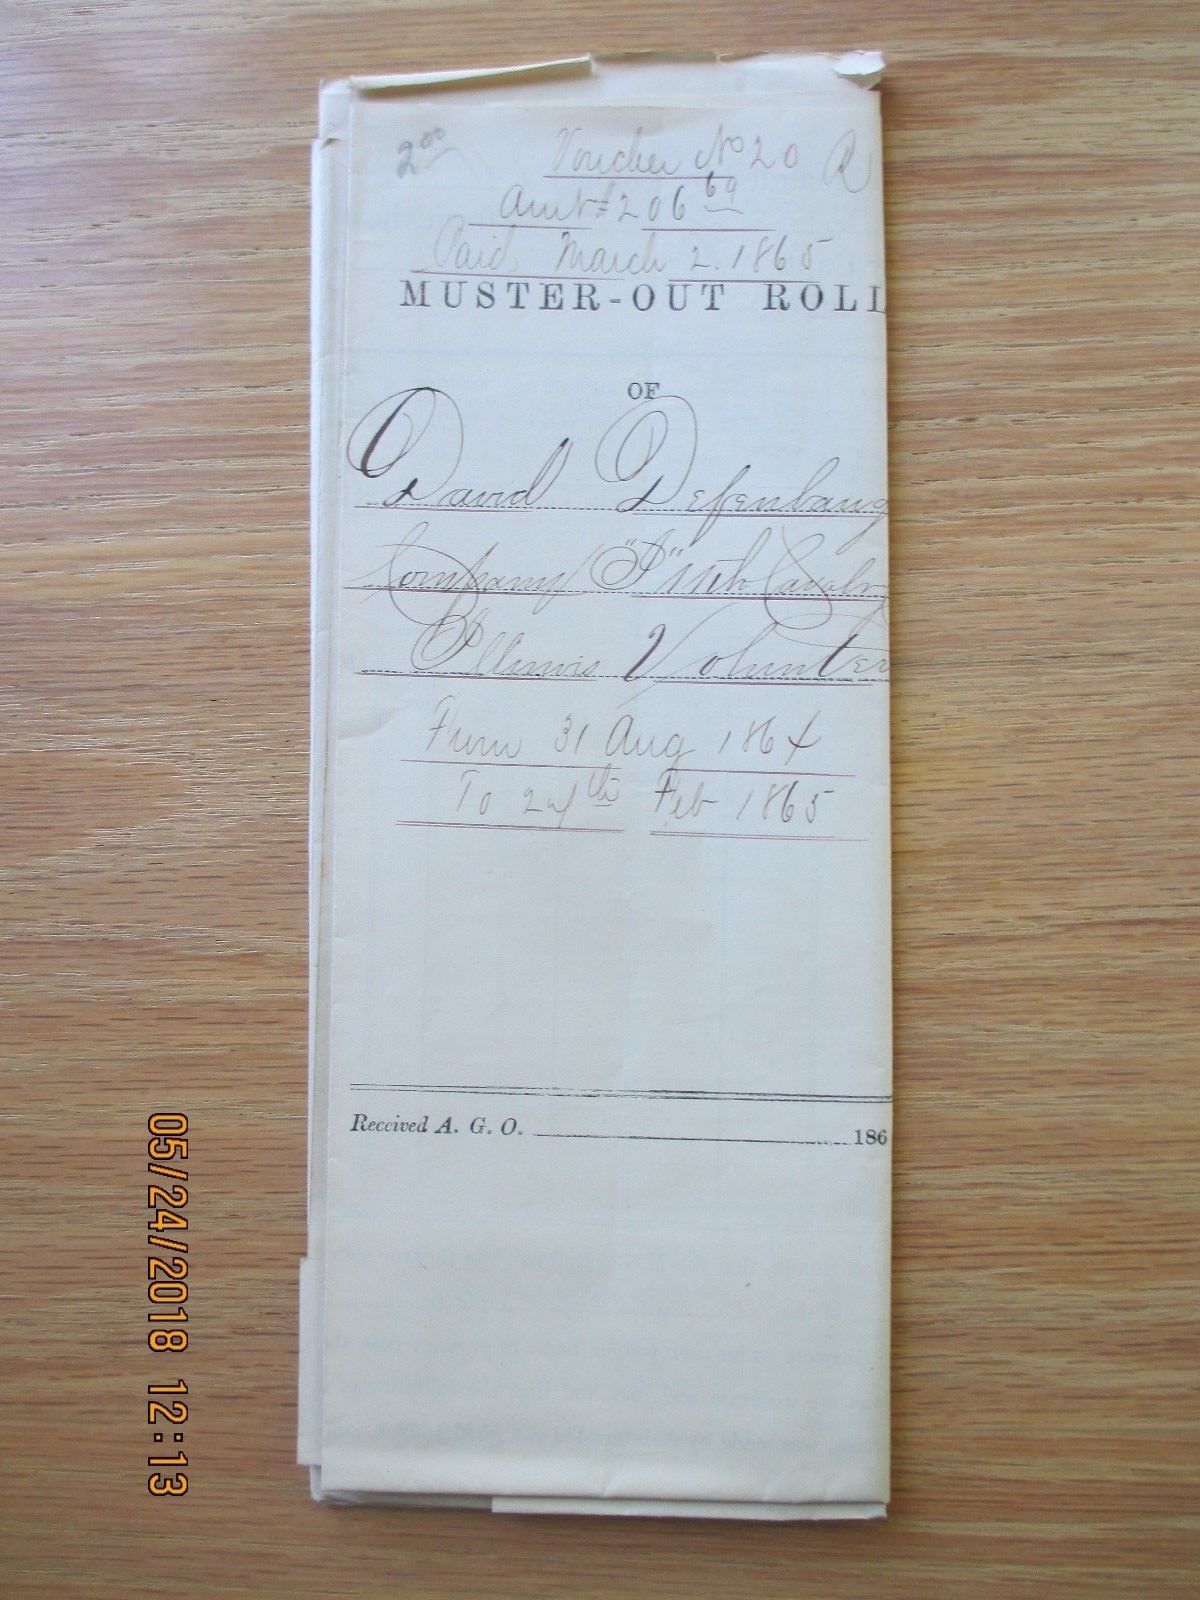 2 00 Voucher No 20 R
Amt $206 69
Paid March 2. 1865
MUSTER-OUT ROLL
OF
David Defenbaug
Company "I" 11th Cavalry
Illinois Volunteer
From 31 Aug 1864
To 24th Feb 1865
Received A. G. O. 186
05/24/2018 12:13